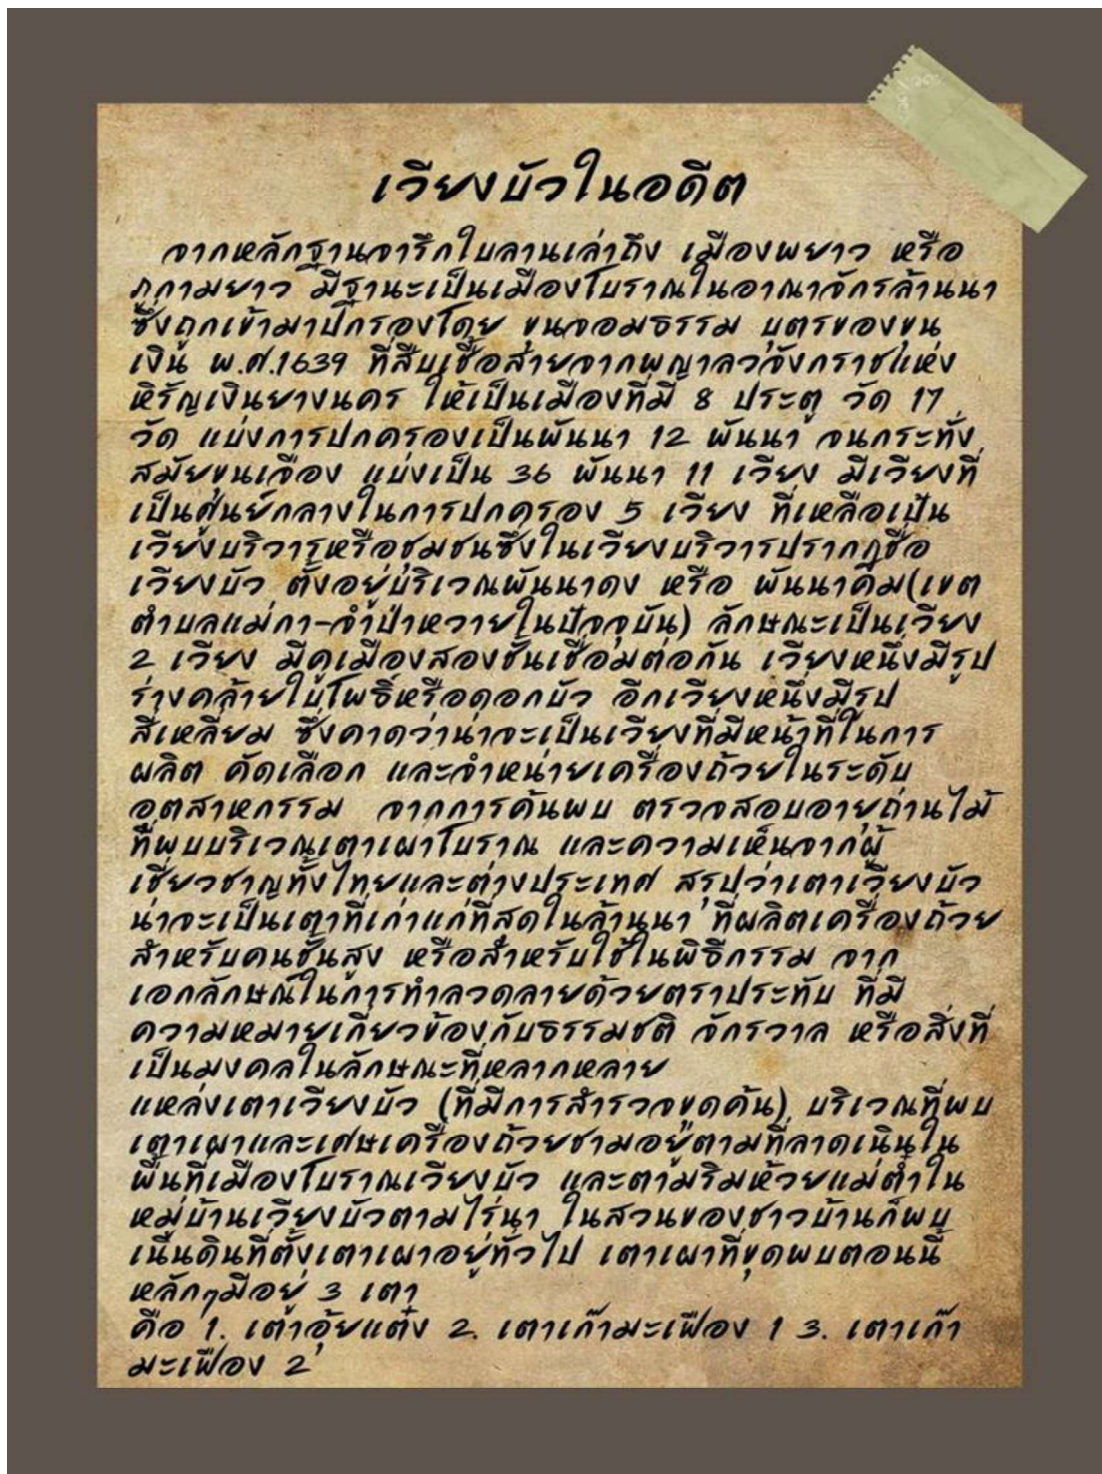 เวียงบัวในอดีต
จากหลักฐานจารึกใบลานเล่าถึง เมืองพยาว หรือ
ภูกามยาว มีฐานะเป็นเมืองโบราณในอาณาจักรล้านนา
ซึ่งถูกเข้ามาปกรองโดย ขุนจอมธรรม บุตรของขุน
เงิน พ.ศ.1639 ที่สืบเชื้อสายจากพญาลวจังกราชแห่ง
หิรัญเงินยางนคร ให้เป็นเมืองที่มี 8 ประตู วัด 17
วัด แบ่งการปกครองเป็นพันนา 12 พันนา จนกระทั่ง
สมัยขุนเจือง แบ่งเป็น 36 พันนา 11 เวียง มีเวียงที่
เป็นศูนย์กลางในการปกครอง 5 เวียง ที่เหลือเป็น
เวียงบริวารหรือชุมชนซึ่งในเวียงบริวารปรากฏชื่อ
เวียงบัว ตั้งอยู่บริเวณพันนาดง หรือ พันนาคิม(เขต
ตำบลแม่กา-จำป่าหวายในปัจจุบัน) ลักษณะเป็นเวียง
2 เวียง มีคูเมืองสองชั้นเชื่อมต่อกัน เวียงหนึ่งมีรูป
ร่างคล้ายใบโพธิ์หรือดอกบัว อีกเวียงหนึ่งมีรูป
สี่เหลี่ยม ซึ่งคาดว่าน่าจะเป็นเวียงที่มีหน้าที่ในการ
ผลิต คัดเลือก และจำหน่ายเครื่องถ้วยในระดับ
อุตสาหกรรม จากการค้นพบ ตรวจสอบอายุถ่านไม้
ที่พบบริเวณเตาเผาโบราณ และความเห็นจากผู้
เชี่ยวชาญทั้งไทยและต่างประเทศ สรุปว่าเตาเวียงบัว
น่าจะเป็นเตาที่เก่าแก่ที่สุดในล้านนา ที่ผลิตเครื่องถ้วย
สำหรับคนชั้นสูง หรือสำหรับใช้ในพิธีกรรม จาก
เอกลักษณ์ในการทำลวดลายด้วยตราประทับ ที่มี
ความหมายเกี่ยวข้องกับธรรมชติ จักรวาล หรือสิ่งที่
เป็นมงคลในลักษณะที่หลากหลาย
แหล่งเตาเวียงบัว (ที่มีการสำรวจขุดค้น) บริเวณที่พบ
เตาเผาและเศษเครื่องถ้วยชามอยู่ตามที่ลาดเนินใน
พื้นที่เมืองโบราณเวียงบัว และตามริมห้วยแม่ต๋ำใน
หมู่บ้านเวียงบัวตามไร่นา ในสวนของชาวบ้านก็พบ
เนินดินที่ตั้งเตาเผาอยู่ทั่วไป เตาเผาที่ขุดพบตอนนี้
หลักๆมีอยู่ 3 เตา
คือ 1. เต๋าอุ๊ยแต๋ง 2. เตาเก๊ามะเฟือง 1 3. เตาเก๊า
มะเฟือง 2